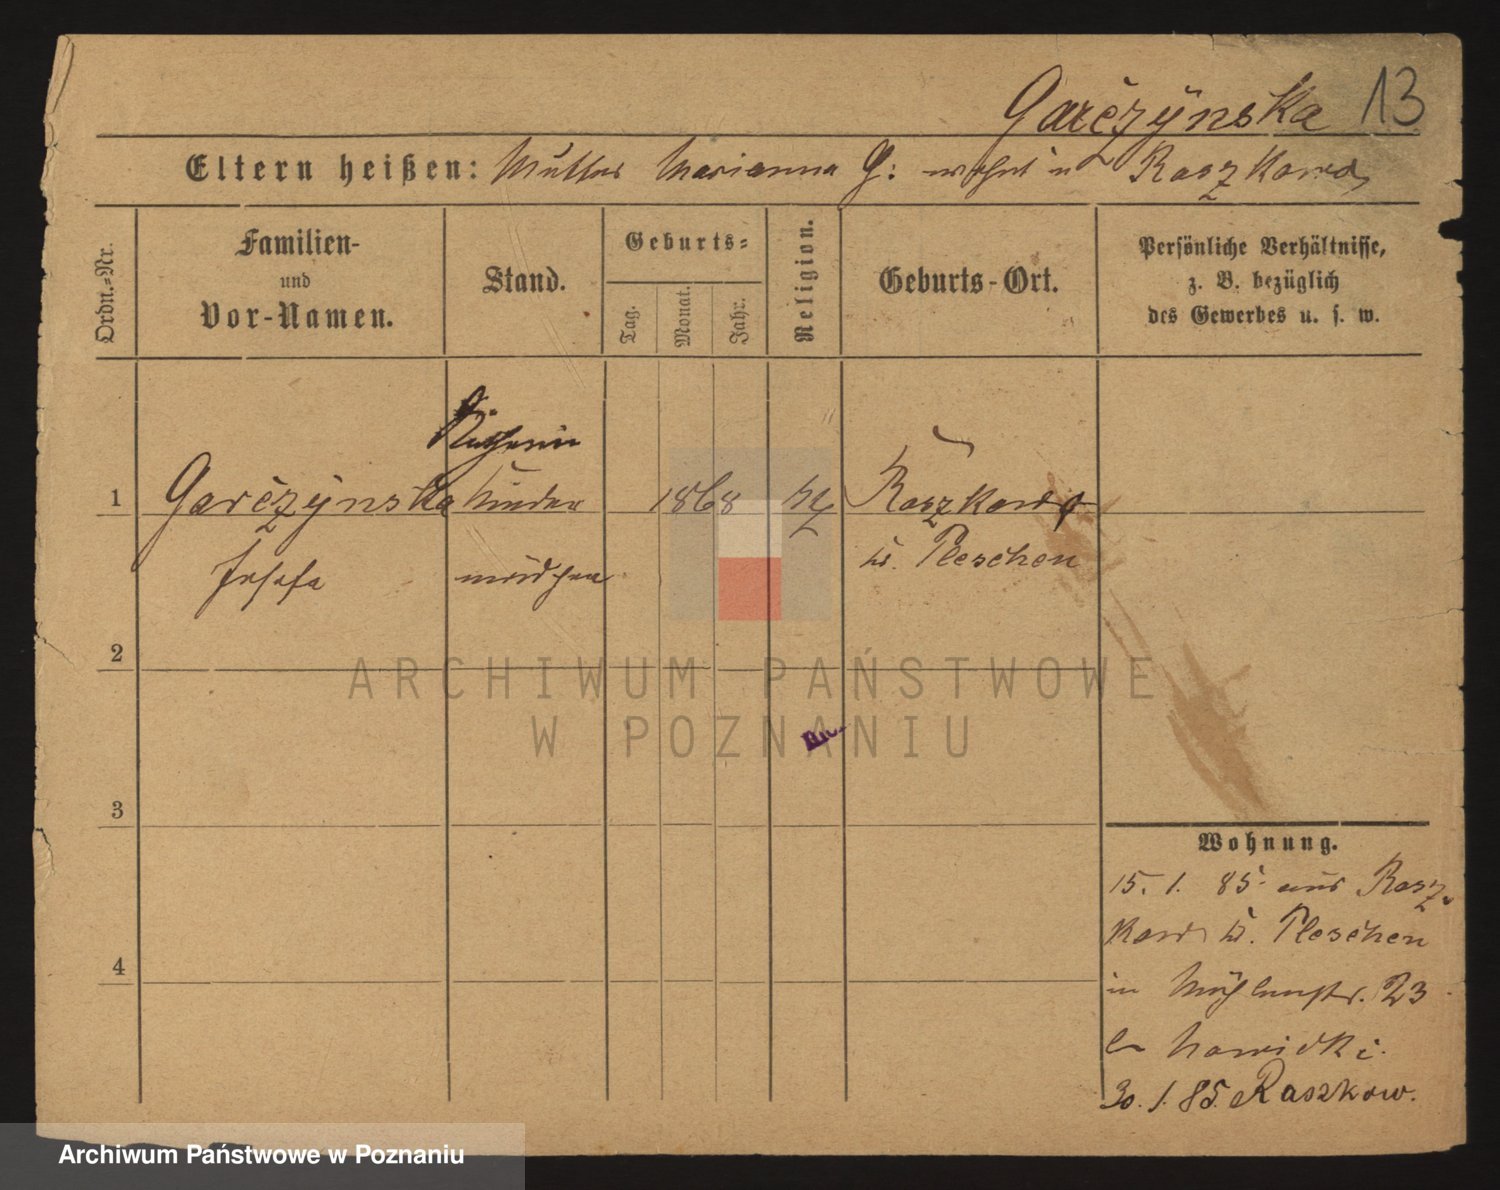 Garčzÿnska 13
Eltern heißen: Mutter Marianna G: wohnt in Raszkowo
Ordn.=Nr.
Familien-
und
Vor-Namen.
Stand.
Geburts=
Tag.
Monat.
Jahr.
Religion.
Geburts-Ort.
Persönliche Verhältnisse,
z. B. bezüglich
des Gewerbes u. s. w.
1
Garčzÿnska
Josefa
Kinder
mädchen
1868
Raszkowo
Kr. Pleschen
2
3
4
Wohnung.
15. 1. 85 aus Rasz-
kow Kr. Pleschen
in Mühlenstr. 23
Nawicki.
30. 1. 85. Raszkow.
ARCHIWUM PAŃSTWOWE
W POZNANIU
Archiwum Państwowe w Poznaniu